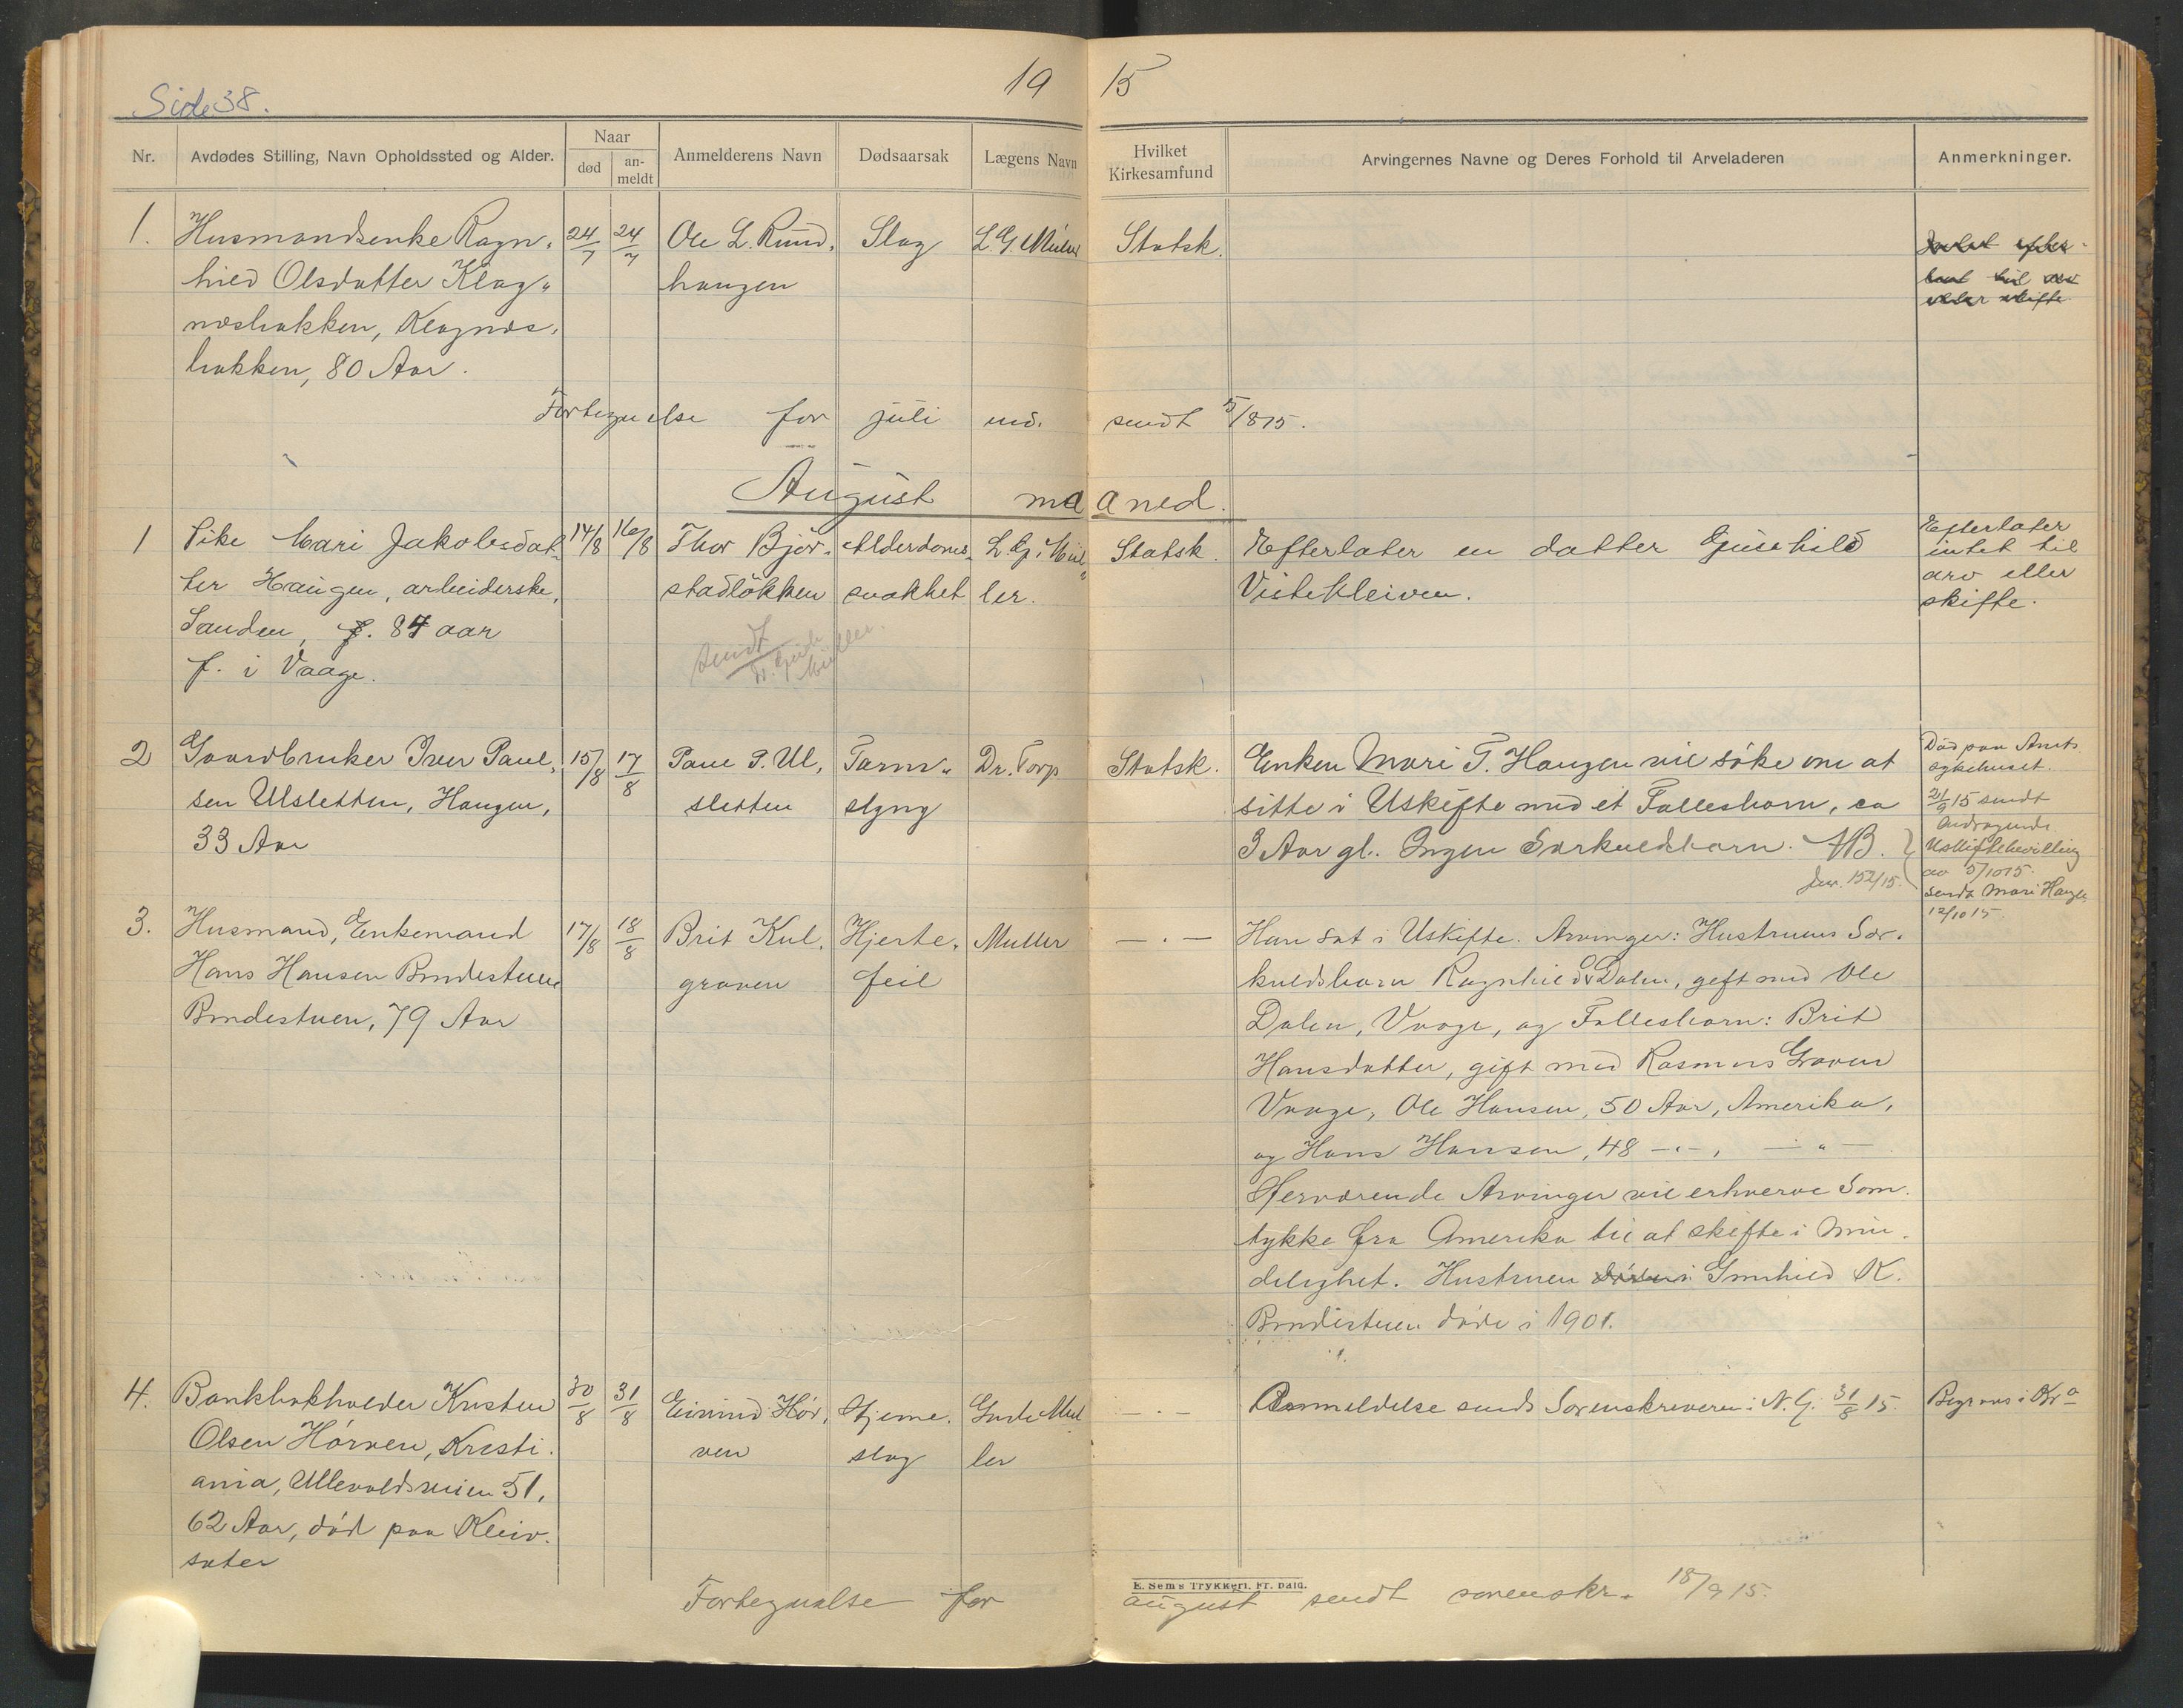 Side 38.
19 15
Nr.
Avdødes Stilling, Navn Opholdssted og Alder.
Naar
død
an-
meldt
Anmelderens Navn
Dødsaarsak
Lægens Navn
Hvilket
Kirkesamfund
Arvingernes Navne og Deres Forhold til Arveladeren
Anmerkninger.
1. Husmandsenke Ragn-
hild Olsdatter Klag-
næsbakken, Klagnæs-
bakken, 80 Aar.
24/7
24/7
Ole L. Rund-
haugen
Slag
L. G. Müller
Statsk.
Fortegnelse for juli md. sendt 5/8 15.
August maaned.
1 Pike Mari Jakobsdat-
ter Haugen, arbeiderske,
Sanden, 84 aar
f. i Vaage.
14/8
16/8
Thor Bjør-
stadløkken
Alderdoms-
svakhet
L. G. Mül-
ler.
sendt
Statsk.
Efterlater en datter Gunhild
Vistekleiven.
Efterlater
intet til
arv eller
skifte.
2 Gaardbruker Iver Paul-
sen Ulsletten, Haugen,
33 Aar
15/8
17/8
Paul P. Ul-
sletten
Tarm-
slyng
Dr. Torp
Statsk.
Enken Mari T. Haugen vil søke om at
sitte i Uskifte med et Fællesbarn, ca
3 Aar gl. Ingen Særkuldsbarn. AB.
Jour. 152/15.
Død paa Amts
sykehuset.
21/9 15 sendt
Andragende
Uskiftebevilling
av 5/10 15.
sendt Mari Haugen
12/10 15
3. Husmand, Enkemand
Hans Hansen Brudestuen
Brudestuen, 79 Aar
17/8
18/8
Brit Kul-
graven
Hjerte-
feil
Muller
— . —
Han sat i Uskifte. Arvinger: Hustruens Sær-
kuldsbarn Ragnhild O. Dalen, gift med Ole
Dalen, Vaage, og Fællesbarn: Brit
Hansdatter, gift med Rasmus Graven
Vaage, Ole Hansen, 50 Aar, Amerika,
og Hans Hansen, 48 — " —, — " —
Herværende Arvinger vil erhverve Sam-
tykke fra Amerika til at skifte i Min-
delighet. Hustruen Gunhild K.
Brudestuen døde i 1901.
4. Bankbokholder Kristen
Olsen Hørven, Kristi-
ania, Ullevoldsveien 51,
62 Aar, død paa Kleiv-
sæter
30/8
31/8
Eivind Hør-
ven
Hjerne-
slag
Gude Mul
ler
— . —
Anmeldelse sendt Sorenskriveren i N. G. 31/8 15.
Begraves i Kr.a
Fortegnelse for august sendt sorenskr. 18/9 15.
E. Sem's Trykkeri, Fr. hald.